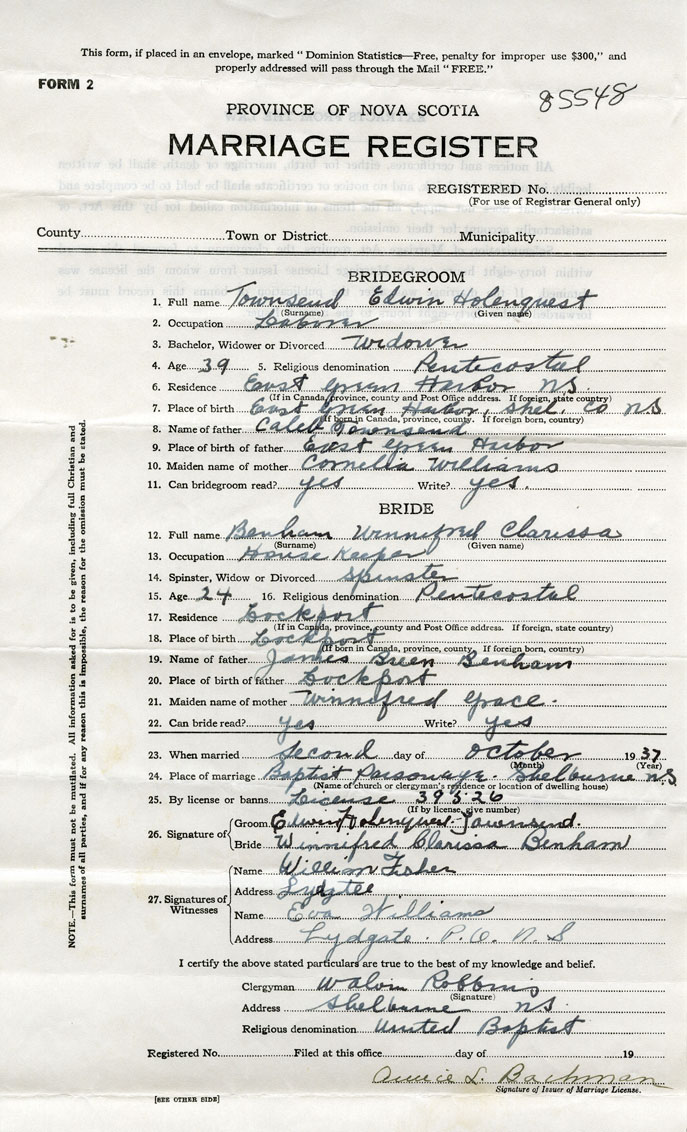 This form, if placed in an envelope, marked " Dominion Statistics—Free, penalty for improper use $300," and
properly addressed will pass through the Mail " FREE."
FORM 2
85548
PROVINCE OF NOVA SCOTIA
MARRIAGE REGISTER
REGISTERED No.
(For use of Registrar General only)
County Town or District Municipality
BRIDEGROOM
1. Full name Townsend Edwin Holenquest
(Surname) (Given name)
2. Occupation Laborer
3. Bachelor, Widower or Divorced Widower
4. Age 39 5. Religious denomination Pentecostal
6. Residence East Green Harbor NS
(If in Canada, province, county and Post Office address. If foreign, state country)
7. Place of birth East Green Harbor, Shel. Co NS
(If born in Canada, province, county. If foreign born, country)
8. Name of father Caleb Townsend
9. Place of birth of father East Green Harbor
10. Maiden name of mother Cornelia Williams
11. Can bridegroom read? yes Write? yes.
BRIDE
12. Full name Benham Winnifred Clarissa
(Surname) (Given name)
13. Occupation House Keeper
14. Spinster, Widow or Divorced Spinster
15. Age 24 16. Religious denomination Pentecostal
17. Residence Lockport
(If in Canada, province, county and Post Office address. If foreign, state country)
18. Place of birth Lockport
(If born in Canada, province, county. If foreign born, country)
19. Name of father James Breen Benham
20. Place of birth of father Lockport
21. Maiden name of mother Winnefred Grace.
22. Can bride read? yes Write? yes
23. When married Second day of October 1937
(Month) (Year)
24. Place of marriage Baptist Parsonage. Shelburne N.S.
(Name of church or clergyman's residence or location of dwelling house)
25. By license or banns License 39526
(If by license, give number)
26. Signature of
Groom Edwin Holenquest Townsend.
Bride Winnifred Clarissa Benham
27. Signatures of Witnesses
Name William Fisher
Address
Name Eva Williams
Address Lydgate. P.O. N.S
I certify the above stated particulars are true to the best of my knowledge and belief.
Clergyman Walvin Robbins
(Signature)
Address Shelburne NS.
Religious denomination United Baptist
Registered No. Filed at this office day of 19
L. Bachman
Signature of Issuer of Marriage License.
[SEE OTHER SIDE]
NOTE.—This form must not be mutilated. All information asked for is to be given, including full Christian and
surnames of all parties, and if for any reason this is impossible, the reason for the omission must be stated.